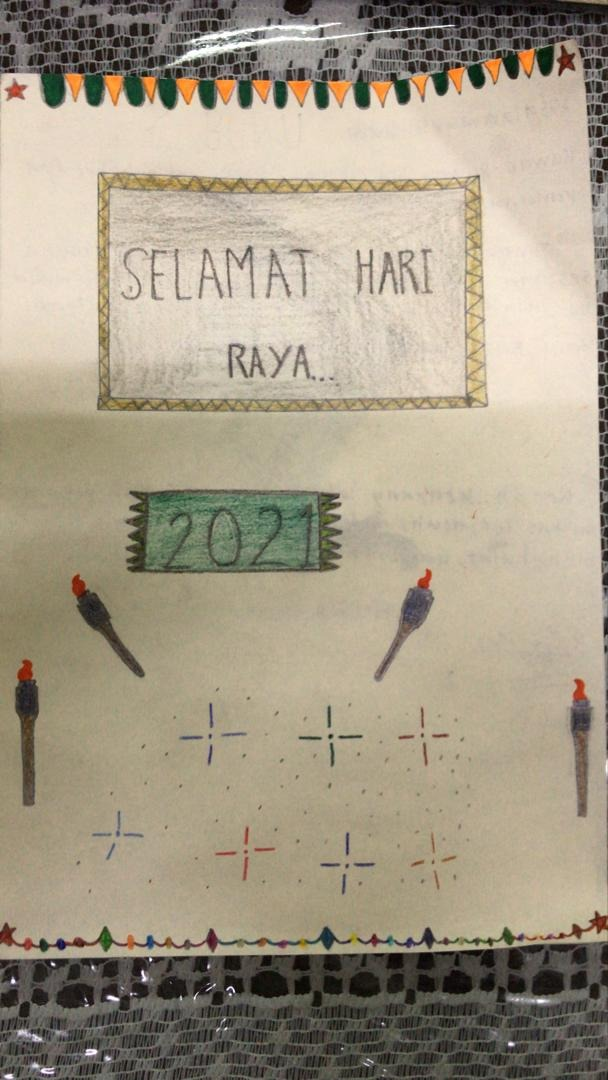 SELAMAT HARI
RAYA...
2021